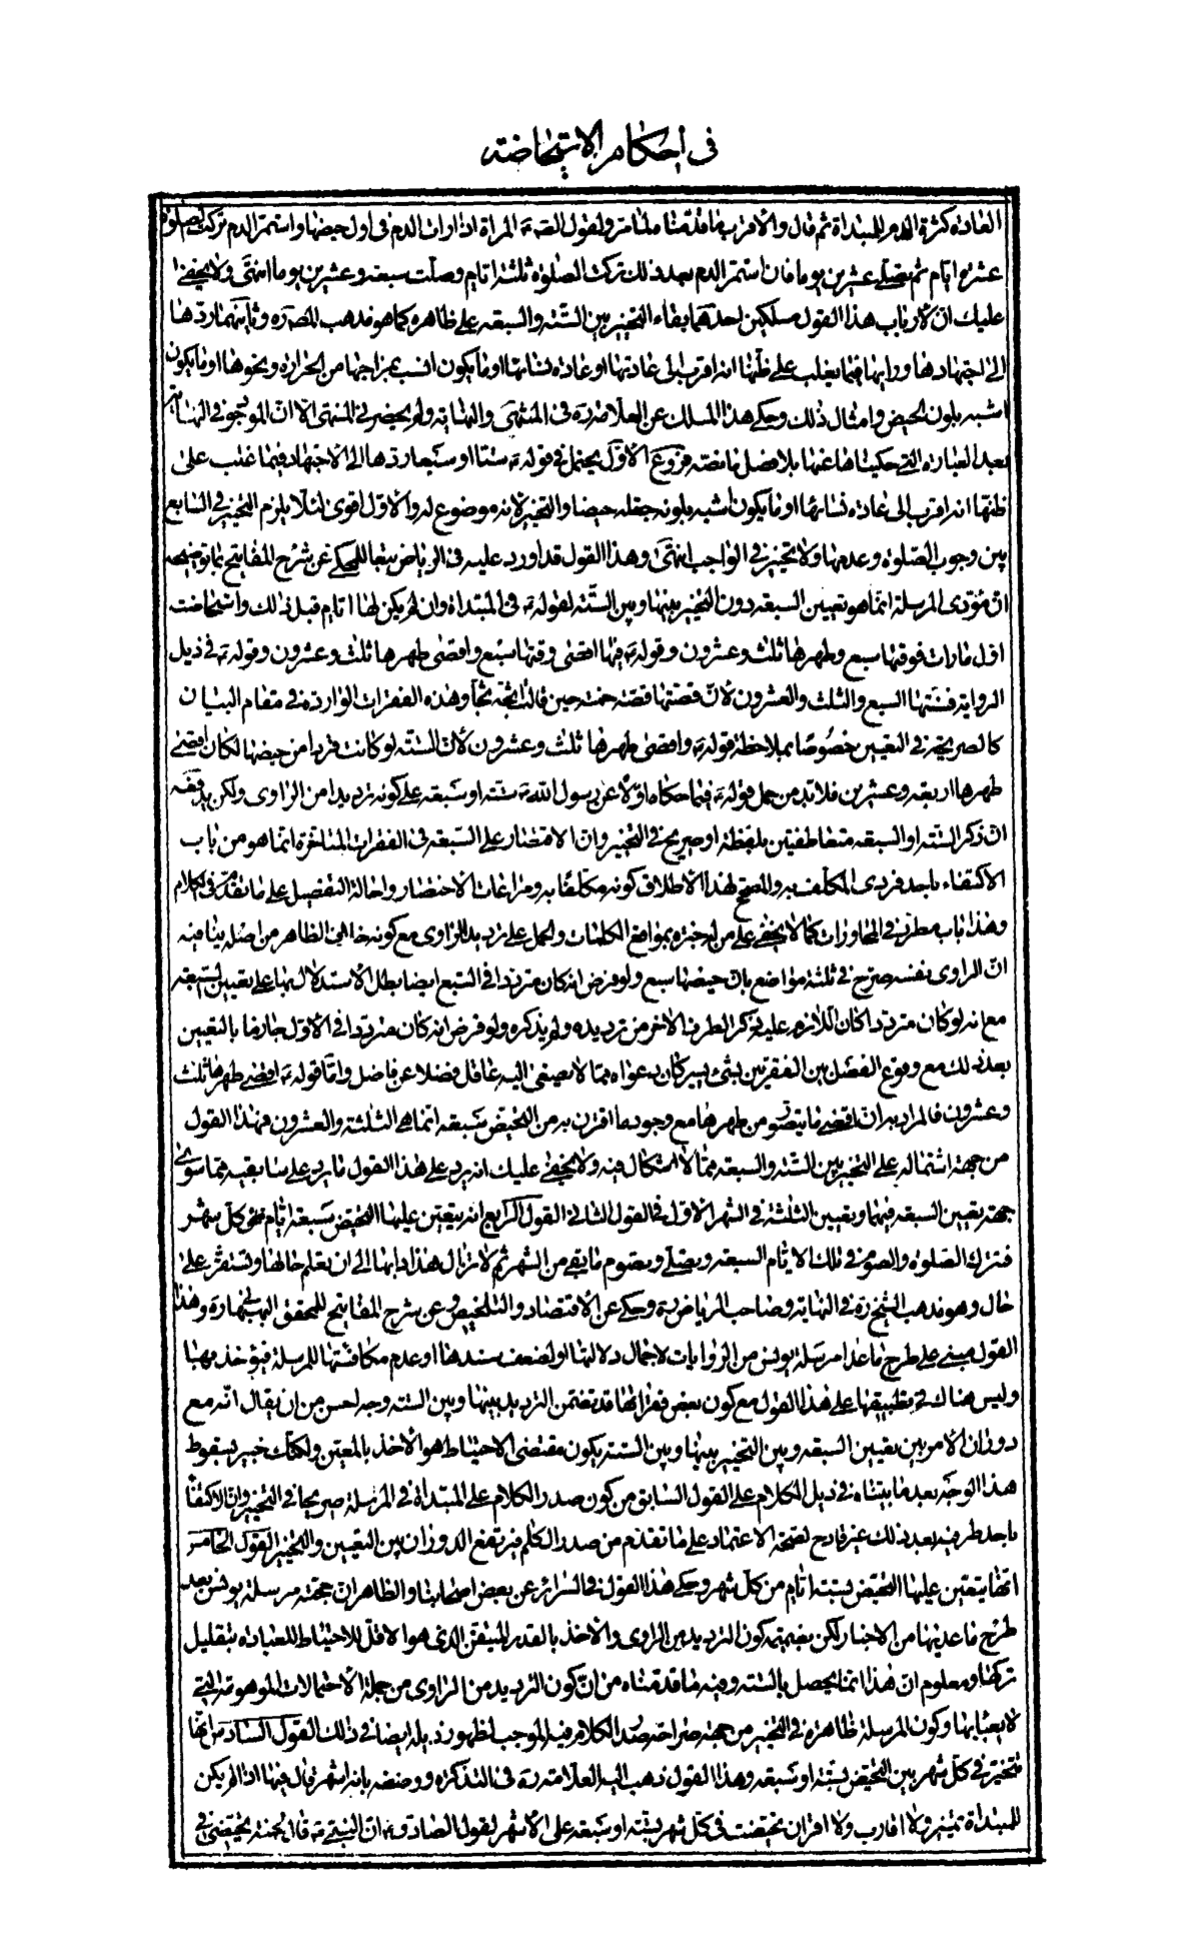 في احكام الاستحاضة
العادة كثرة الدم للمبتداة ثم قال والاقرب ما قدمنا ملنا مر ولقول الصه المراة اذا رات الدم في اول حيضها واستمر الدم تركت الصلوة
عشرة ايام ثم تصلى عشرين يوما فان استمر الدم بعد ذلك تركت الصلوة ثلثة ايام وصلت سبعة وعشرين يوما انتهى ولا يخفى
عليك ان لارباب هذا القول مسلكين احدهما بقاء التخيير بين الستة والسبعة على ظاهره كما هو مذهب المص ره وثانيهما ردها
الى اجتهادها ورايها فيما يغلب على ظنها انه اقرب الى عادتها او عادة نسائها او ما يكون انسب بمزاجها من الحرارة ونحوها او ما يكون
اشبه بلون الحيض وامثال ذلك وحكى هذا المسلك عن العلامة ره في المنتهى والنهاية ولم يحضرني المنتهى الا ان الموجود في النهاية
بعد العبارة التي حكيناها عنها بلا فصل ما نصه فروع الاول يحتمل في قوله ستا او سبعا ردها الى الاجتهاد فيما غلب على
ظنها انه اقرب الى عادة نسائها او ما يكون اشبه بلونه جعله حيضا والتخيير لانه موضوع له والاول اقوى لئلا يلزم التخيير في السابع
بين وجوب الصلوة وعدمها ولا تخيير في الواجب انتهى وهذا القول قد اورد عليه في الرياض تبعا للمحكى عن شرح المفاتيح بما توضيحه
ان مؤدى المرسلة انما هو تعيين السبعة دون التخيير بينها وبين الستة لقوله في المبتداة وان لم يكن لها ايام قبل ذلك واستحاضت
اول ما رات فوقتها سبع وطهرها ثلث وعشرون وقوله فيها اقصى وقتها سبع واقصى طهرها ثلث وعشرون وقوله في ذيل
الرواية فسنتها السبع والثلث والعشرون لان قصتها قصة حمنة حين قالت اثجه ثجا وهذه الفقرات الواردة في مقام البيان
كالصريحة في التعيين خصوصا بملاحظة قوله واقصى طهرها ثلث وعشرون لان الستة لو كانت فردا من حيضها لكان اقصى
طهرها اربعة وعشرين فلا بد من حمل قوله فيما حكاه اولا عن رسول الله ستة او سبعة على كونه ترديدا من الراوى ولكن يدفعه
ان ذكر الستة او السبعة متعاطفتين بلفظة او صريح في التخيير وان الاقتصار على السبعة في الفقرات المتاخرة انما هو من باب
الاكتفاء باحد فردى المكلف به والمصحح لهذا الاطلاق كونه مكلفا به ومراعات الاختصار واحالة التفصيل على ما تقدم في الكلام
وهذا باب مطرد في المحاورات كما لا يخفى على من له خبرة بمواقع الكلمات والحمل على ترديد الراوى مع كونه خلاف الظاهر من اصله ينافيه
ان الراوى نفسه صرح في ثلثة مواضع بان حيضها سبع ولو فرض انه كان مترددا في السبع ايضا بطل الاستدلال بها على تعيين السبعة
مع انه لو كان مترددا كان اللازم عليه ذكر الطرف الاخر من ترديده ولم يذكره ولو فرض انه كان مترددا في الاول جازما بالتعيين
بعد ذلك مع وقوع الفصل بين الفقرتين بشئ يسير كان دعواه مما لا يصغى اليه عاقل فضلا عن فاضل واما قوله اقصى طهرها ثلث
وعشرون فالمراد به ان اقصى ما يتصور من طهرها مع وجود ما اقترن به من التحيض بسبعة انما هي الثلثة والعشرون فهذا القول
من جهة اشتماله على التخيير بين الستة والسبعة مما لا اشكال فيه ولا يخفى عليك انه يرد على هذا القول ما يرد على سابقيه مما سوى
جهة تعيين السبعة فيهما وتعيين الثلثة في الشهر الاول في القول الثاني القول الرابع انه يتعين عليها التحيض بسبعة ايام في كل شهر
فتترك الصلوة والصوم في تلك الايام السبعة وتصلى وتصوم ما بقى من الشهر ثم لا تزال هذا دابها الى ان تعلم حالها وتستقر على
حال وهو مذهب الشيخ ره في النهاية وصاحب الرياض ره وحكى عن الاقتصاد والتلخيص وعن شرح المفاتيح للمحقق البهبهانى ره وهذا
القول مبنى على طرح ما عدا مرسلة يونس من الروايات لاجمال دلالتها او لضعف سندها او عدم مكافئتها للمرسلة فيؤخذ بها
وليس هناك في تطبيقها على هذا القول مع كون بعض فقراتها قد تضمن الترديد بينها وبين الستة وجه احسن من ان يقال انه مع
دوران الامر بين تعيين السبعة وبين التخيير بينها وبين الستة يكون مقتضى الاحتياط هو الاخذ بالمعين ولكنك خبير بسقوط
هذا الوجه بعد ما بيناه في ذيل الكلام على القول السابق من كون صدر الكلام على المبتداة في المرسلة صريحا في التخيير وان الاكتفاء
باحد طرفيه بعد ذلك غير قادح لصحة الاعتماد على ما تقدم من صدر الكلام فيرتفع الدوران بين التعيين والتخيير القول الخامس
انها يتعين عليها التحيض بستة ايام من كل شهر وحكى هذا القول في السرائر عن بعض اصحابنا والظاهر ان حجته مرسلة يونس بعد
طرح ما عديها من الاخبار لكن بضميمة كون الترديد من الراوى والاخذ بالقدر المتيقن الذى هو الاقل للاحتياط للعبادة بتقليل
تركها ومعلوم ان هذا انما يحصل بالستة وفيه ما قدمناه من ان كون الترديد من الراوى من جملة الاحتمالات الموهومة التي
لا يعبأ بها وكون المرسلة ظاهرة في التخيير من جهة صراحة صدر الكلام فيه الموجب لظهور ذيله ايضا في ذلك القول السادس انها
تتخير في كل شهر بين التحيض بستة او سبعة وهذا القول ذهب اليه العلامة ره في التذكرة ووصفه بانه اشهر قال فيها اذا لم يكن
للمبتداة تميز ولا اقارب ولا اقران تحيضت في كل شهر بستة او سبعة على الاشهر لقول الصادق ان النبي قال لحمنة تحيضى في